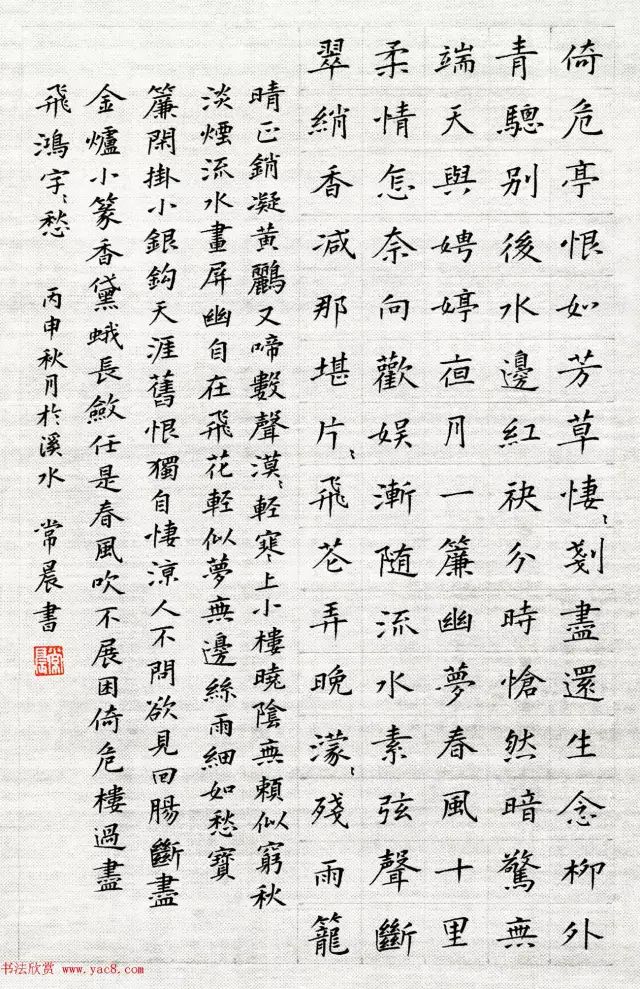 倚危亭恨如芳草悽〻剗盡還生念柳外
青驄別後水邊紅袂分時愴然暗驚無
端天與娉婷夜月一簾幽夢春風十里
柔情怎奈向歡娱漸随流水素弦聲斷
翠綃香減那堪片〻飛花弄晚濛〻殘雨籠
晴正銷凝黄鸝又啼數聲漠〻輕寒上小樓曉陰無賴似窮秋
淡煙流水畫屏幽自在飛花輕似夢無邊絲雨細如愁寶
簾閑掛小銀鈎天涯舊恨獨自悽涼人不問欲見回腸斷盡
金爐小篆香黛蛾長斂任是春風吹不展困倚危樓過盡
飛鴻字〻愁 丙申秋月於溪水 常晨書
常晨
书法欣赏 www.yac8.com